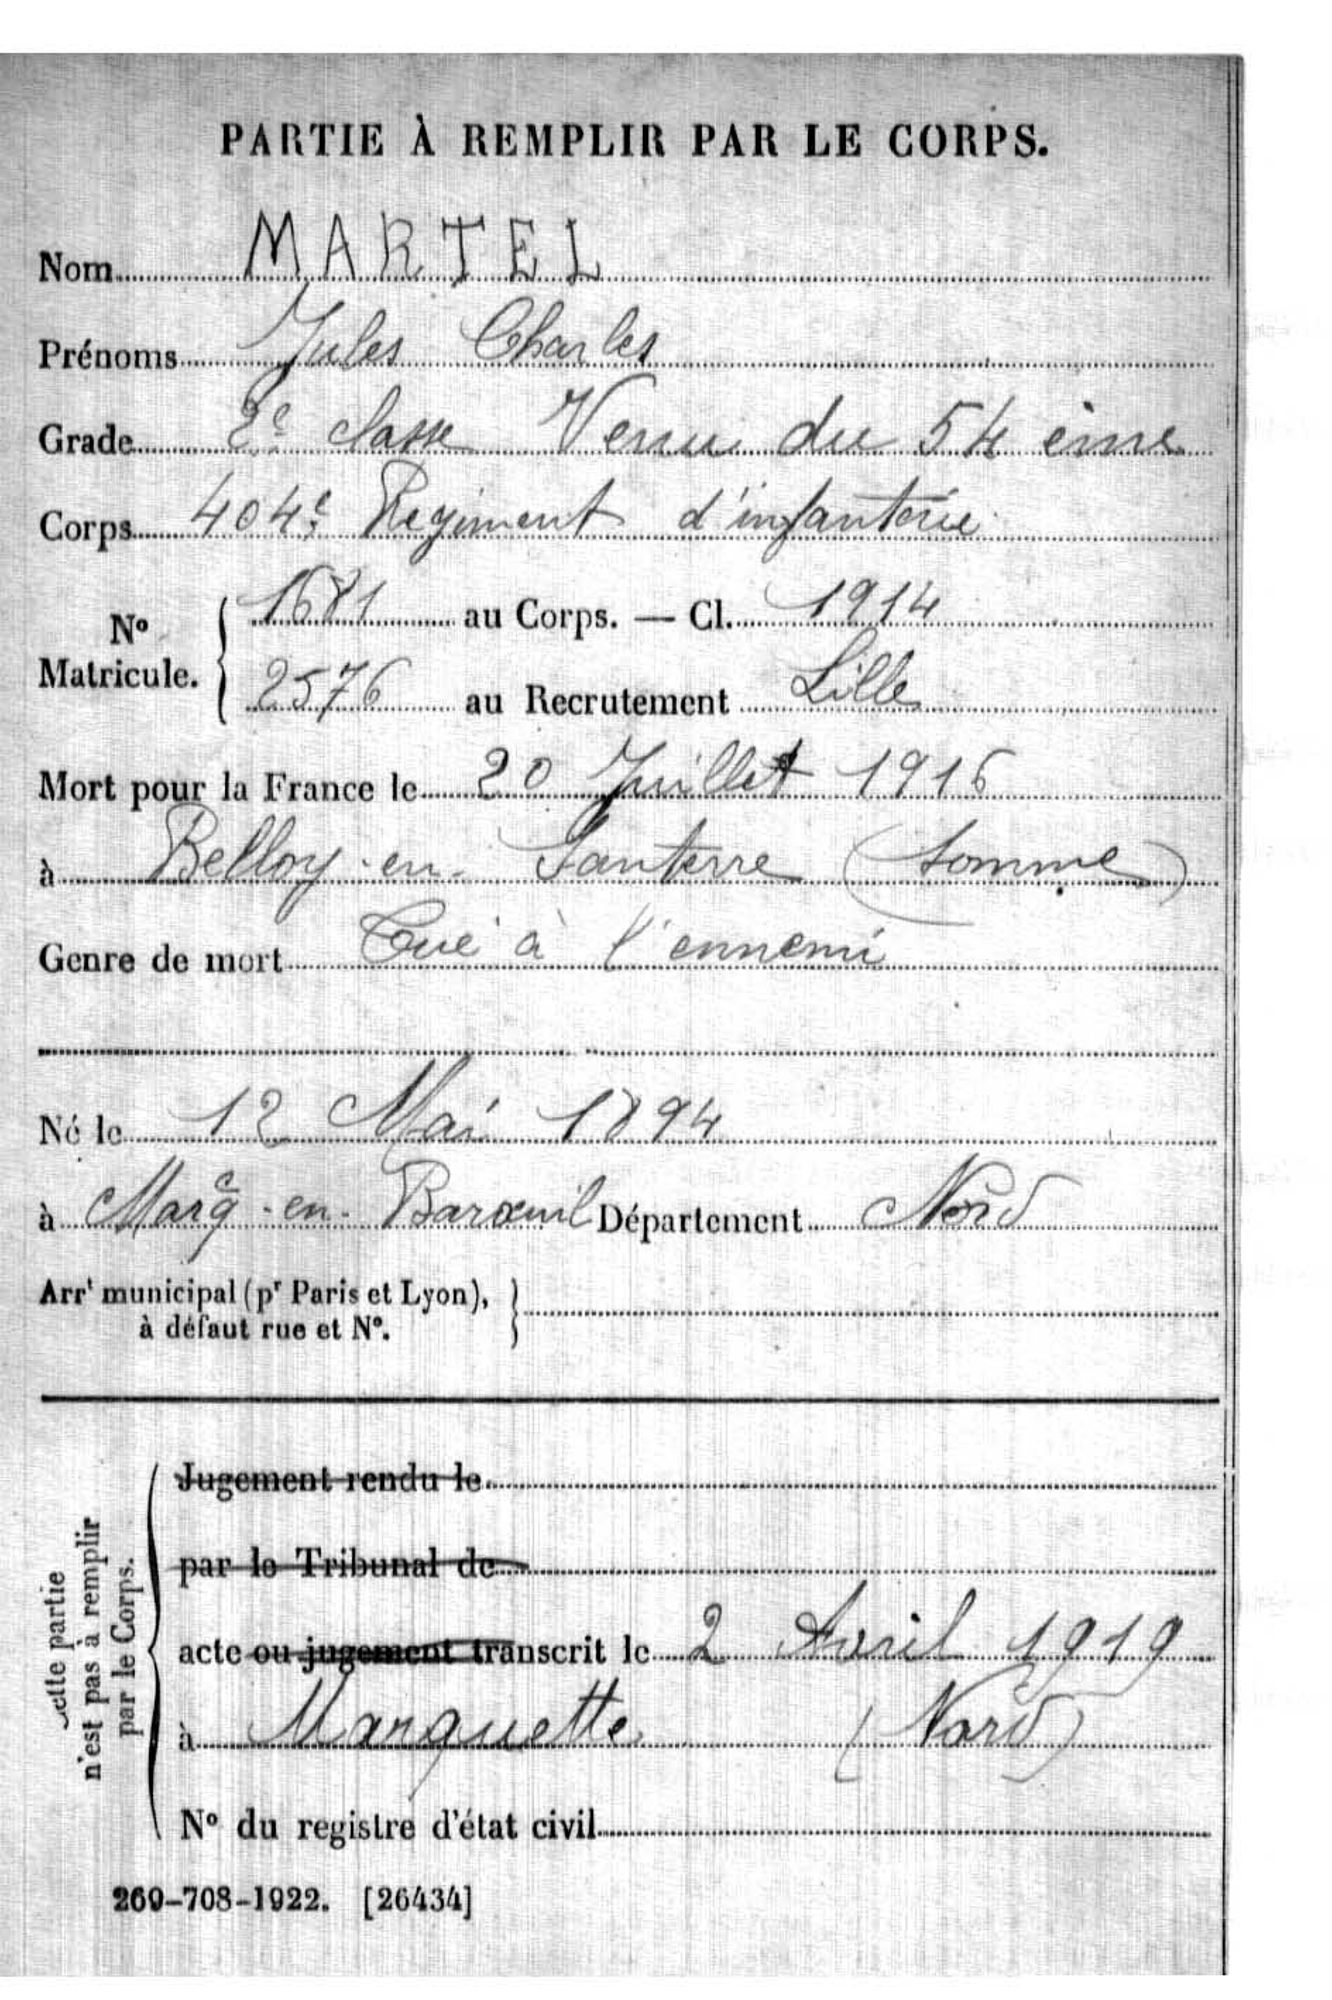 PARTIE À REMPLIR PAR LE CORPS.
Nom MARTEL
Prénoms Jules Charles
Grade 2e classe Venu du 54 ème
Corps 404e Régiment d'infanterie
No Matricule. 1681 au Corps. — Cl. 1914
2576 au Recrutement Lille
Mort pour la France le 20 Juillet 1916
à Belloy-en-Santerre (Somme)
Genre de mort Tué à l'ennemi
Né le 12 Mai 1894
à Marcq-en-Barœuil Département Nord
Arrt municipal (pr Paris et Lyon),
à défaut rue et No.
Cette partie
n'est pas à remplir
par le Corps.
Jugement rendu le
par le Tribunal de
acte ou jugement transcrit le 2 Avril 1919
à Marquette (Nord)
No du registre d'état civil
269-708-1922. [26434]